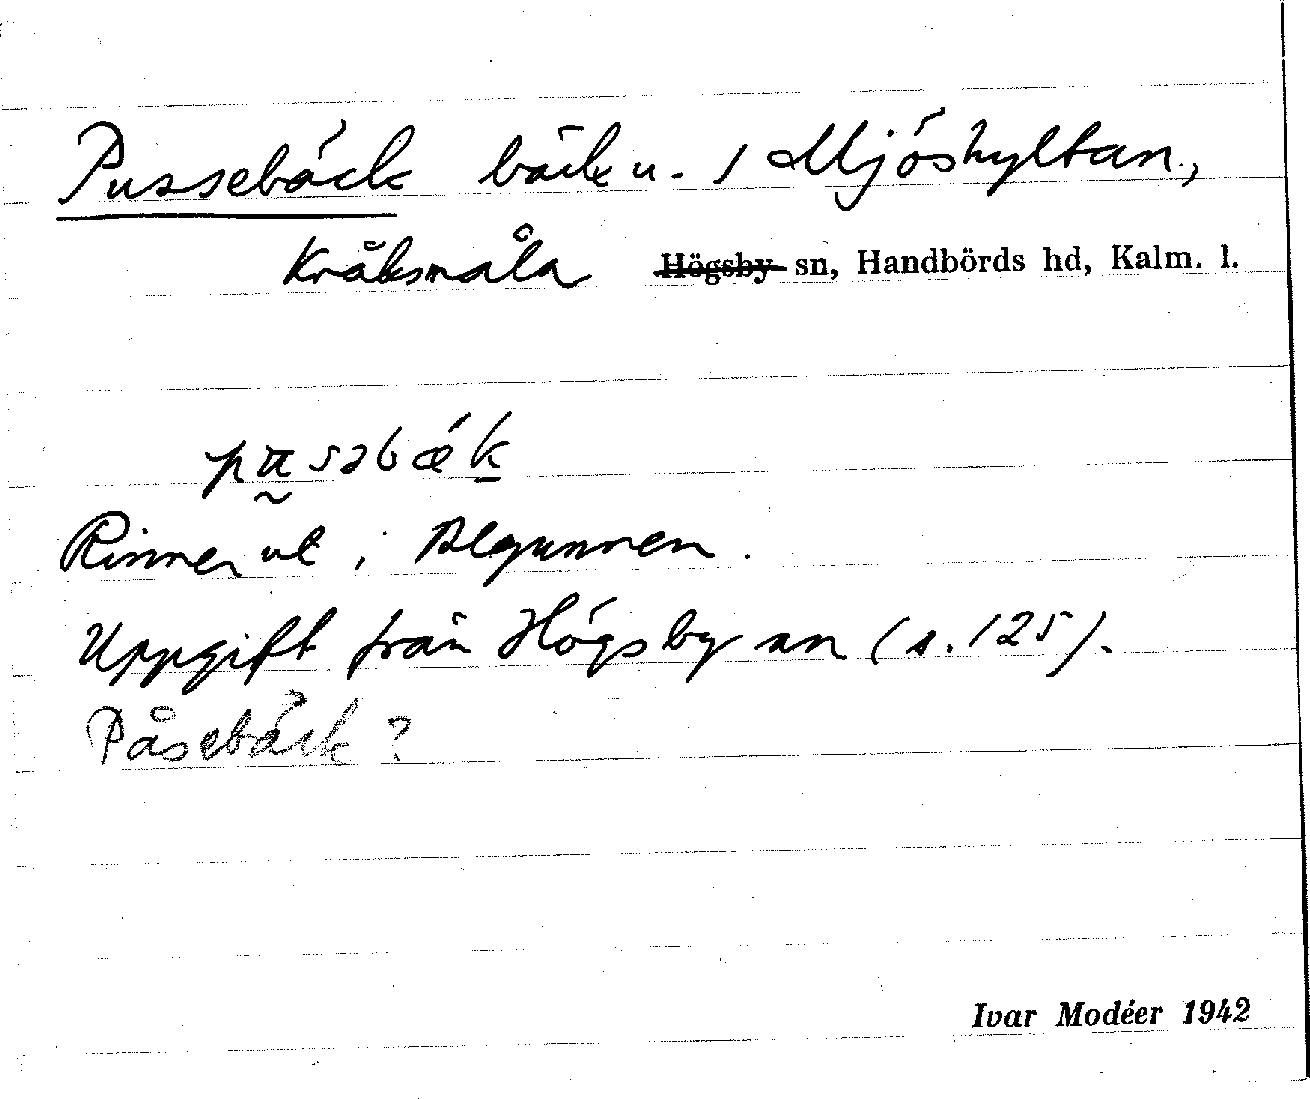 Pussebäck bäck u. 1 Mjöshyltan,
Kråksmåla Högsby sn, Handbörds hd, Kalm. l.
Rinner ut i Algunnen.
Uppgift från Högsby sn (s. 125).
Påsebäck?
Ivar Modéer 1942